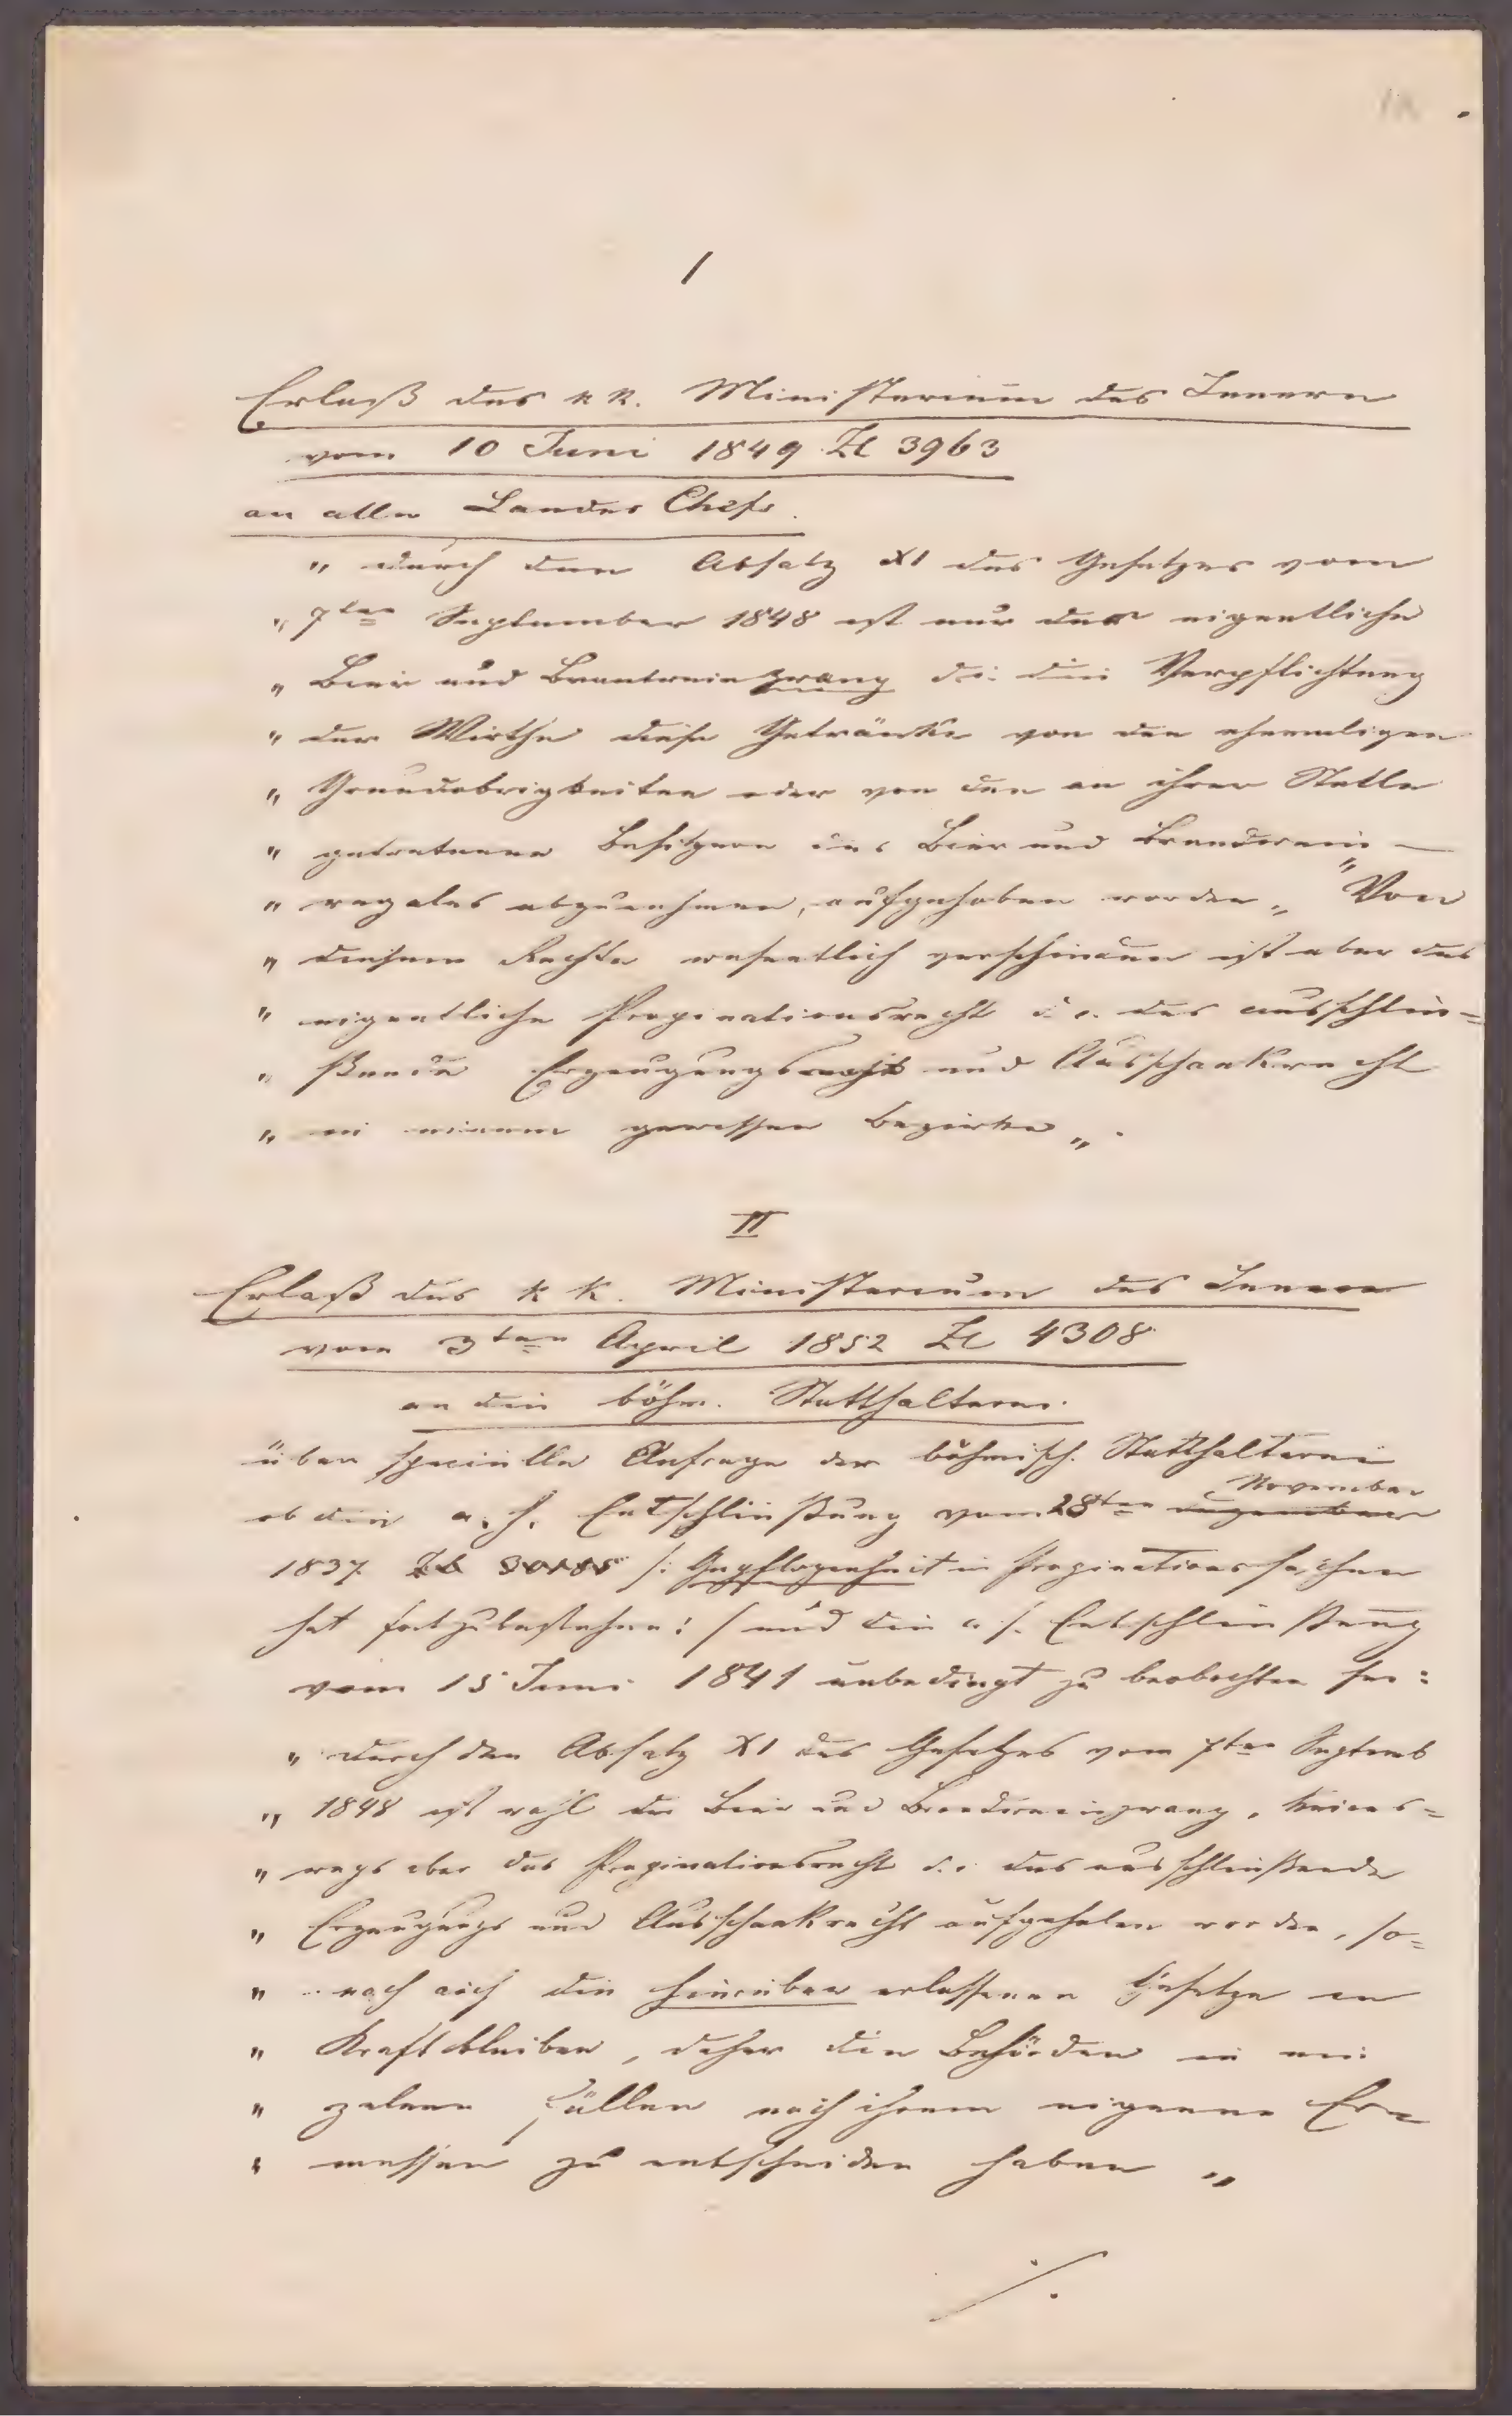 I
Erlaß des k k. Ministerium des Innern
vom 10 Juni 1849 Zl 3963
an alle Landes Chefs.
„ durch den Absatz XI des Gesetzes vom
„ 7ten September 1848 ist nur der eigentliche
„ Bier und Brantweinzwang d. i. die Verpflichtung
„ der Wirthe diese Getränke von den ehemaligen
„ Grundobrigkeiten oder von den an ihrer Stelle
„ getretenen Besitzern des Bier und Brandwein —
„ regales abzunehmen, aufgehoben worden „ "Von
„ diesem Rechte wesentlich verschieden ist aber das
„ eigentliche Propinationsrecht d. i. das ausschlie=
„ ßende Erzeugungs und Ausschankrecht
„ in einem gewissen Bezirke „.
II
Erlaß des k k. Ministerium des Innern
vom 3ten April 1852 Zl 4308
an die böhm. Statthalterei.
über specielle Anfrage der böhmisch. Statthalterei
November
ob die a. h. Entschließung vom 28ten dezember
1837 /: Gepflogenheit in Propinationssachen
hat fortzubestehen :/ und die a. h. Entschließung
vom 15 Juni 1841 unbedingt zu beobachten sei:
„ durch den Absatz XI des Gesetzes vom 7ten Septemb
„ 1848 ist wohl der Bier und Brandweinzwang, keines=
„ wegs aber das Propinationsrecht d. i. das ausschließende
„ Erzeugungs und Ausschankrecht aufgehoben worden, so=
„ nach auch die hierüber erlassenen Gesetze in
„ Kraft bleiben, daher die Behörden in ein
„ zelnen Fällen nach ihrem eigenen Er=
„ messen zu entscheiden haben „
./.